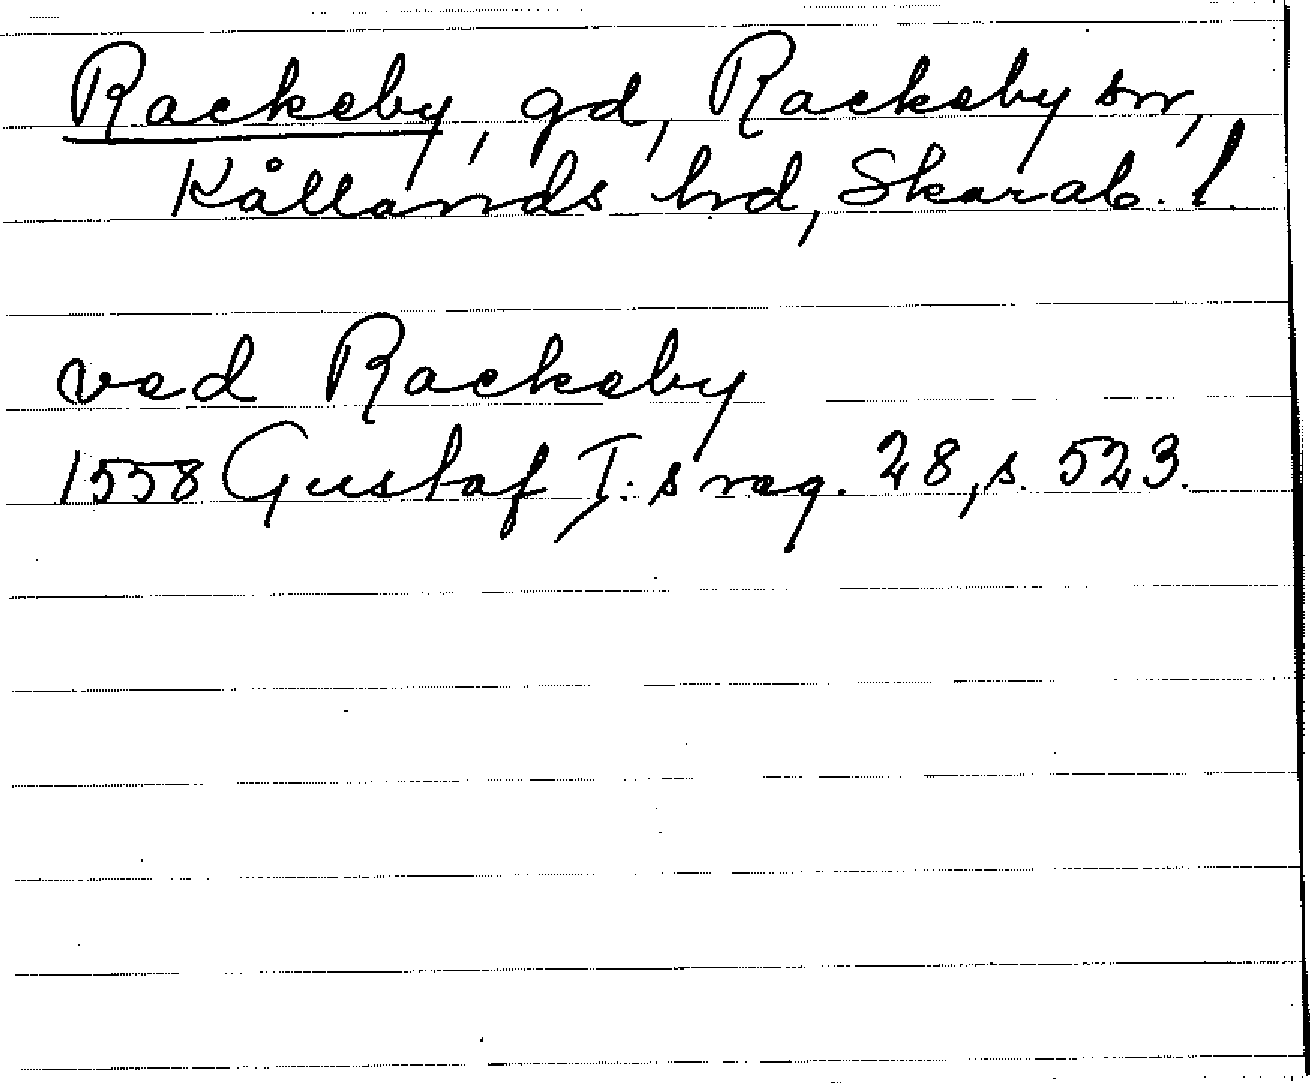 Rackeby, gd, Rackeby sn,
Kållands hd, Skarab. l.
ved Rackeby
1558 Gustaf I:s reg. 28, s. 523.